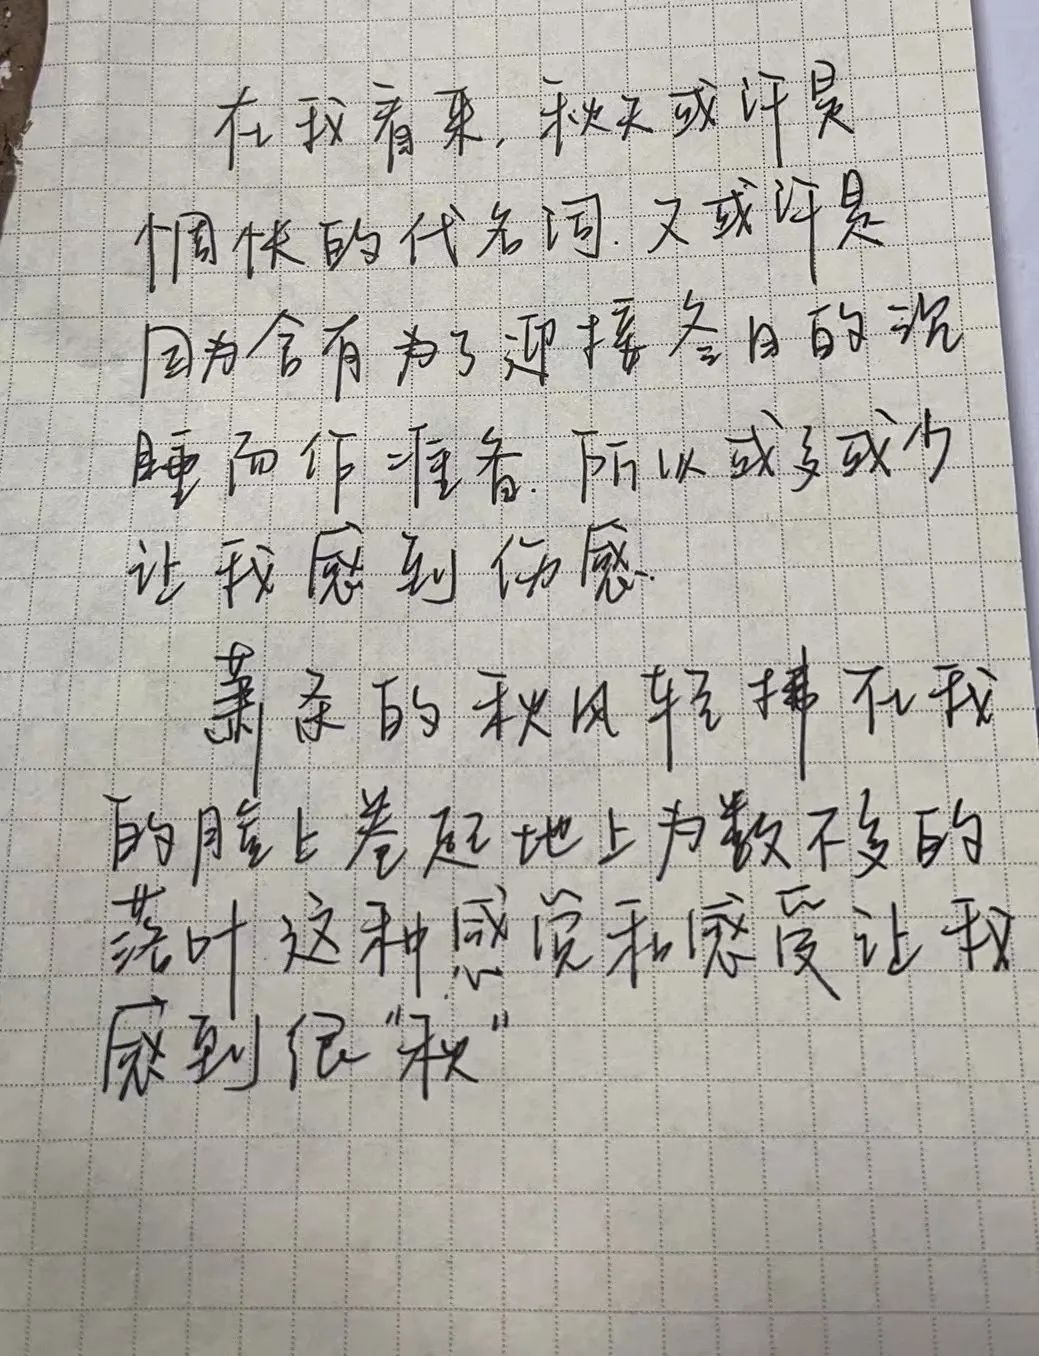 在我看来,秋天或许是
惆怅的代名词.又或许是
因为含有为了迎接冬日的沉
睡而作准备.所以或多或少
让我感到伤感.
萧条的秋风轻拂在我
的脸上卷起地上为数不多的
落叶这种感觉和感受让我
感到很“秋”